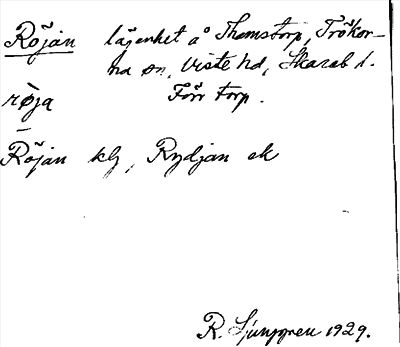 Röjan lägenhet å Thomstorp, Trökör-
na sn, Viste hd, Skarab. l.
røja Förr torp.
Röjan kly, Rydjan ek
R. Ljunggren 1929.